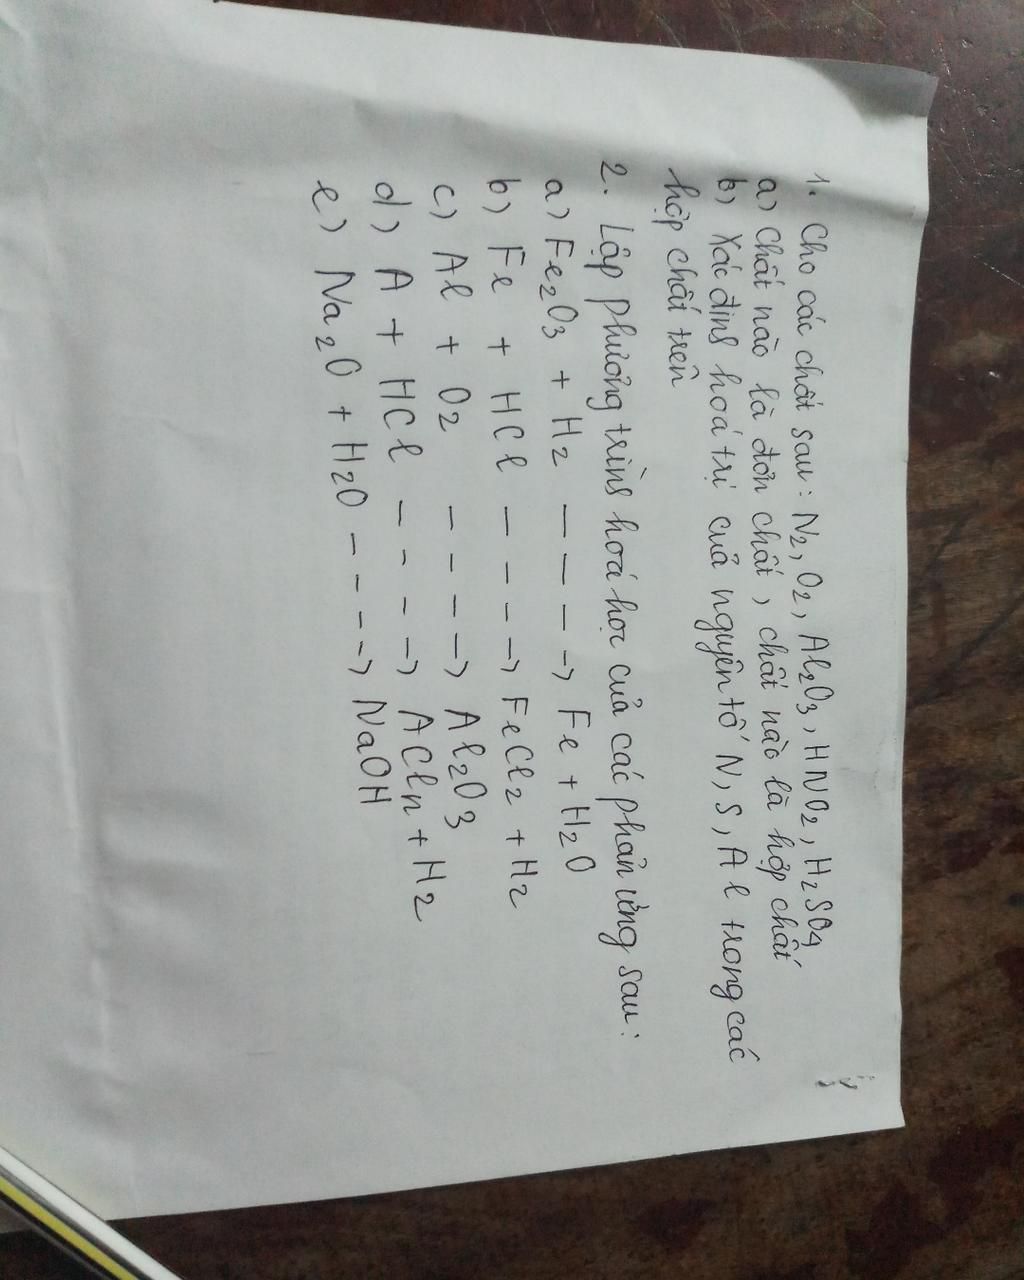 1. Cho các chất sau: N2, O2, Al2O3, HNO2, H2SO4
a) Chất nào là đơn chất, chất nào là hợp chất
b) Xác định hoá trị của nguyên tố N, S, Al trong các
hợp chất trên
2. Lập phương trình hoá học của các phản ứng sau:
a) Fe2O3 + H2 ----> Fe + H2O
b) Fe + HCl ----> FeCl2 + H2
c) Al + O2 ----> Al2O3
d) A + HCl ----> ACln + H2
e) Na2O + H2O ----> NaOH